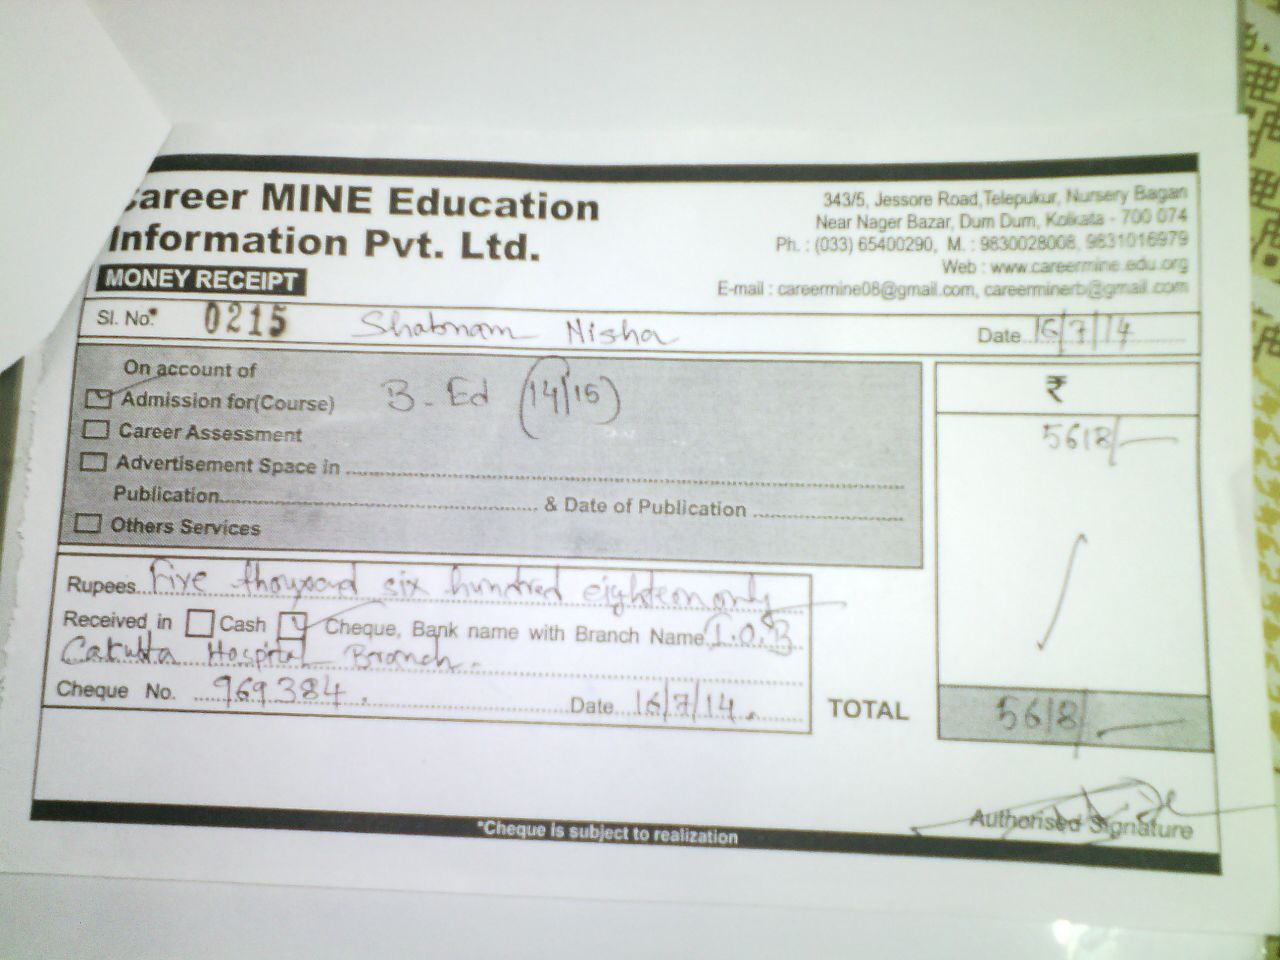 Career MINE Education
Information Pvt. Ltd.
MONEY RECEIPT
343/5, Jessore Road,Telepukur, Nursery Bagan
Near Nager Bazar, Dum Dum, Kolkata - 700 074
Ph. : (033) 65400290, M. : 9830028008, 9831016979
Web : www.careermine.edu.org
E-mail : careermine08@gmail.com, careerminerb@gmail.com
Sl. No. 0215 Shabnam Nisha Date 16/7/14
On account of
Admission for(Course) B.Ed (14/15)
Career Assessment
Advertisement Space in
Publication & Date of Publication
Others Services
₹
5618/-
Rupees Five thousand six hundred eighteen only
Received in Cash Cheque, Bank name with Branch Name I.O.B
Calcutta Hospital Branch.
Cheque No. 969384. Date 16/7/14.
TOTAL 5618/-
Authorised Signature
*Cheque is subject to realization